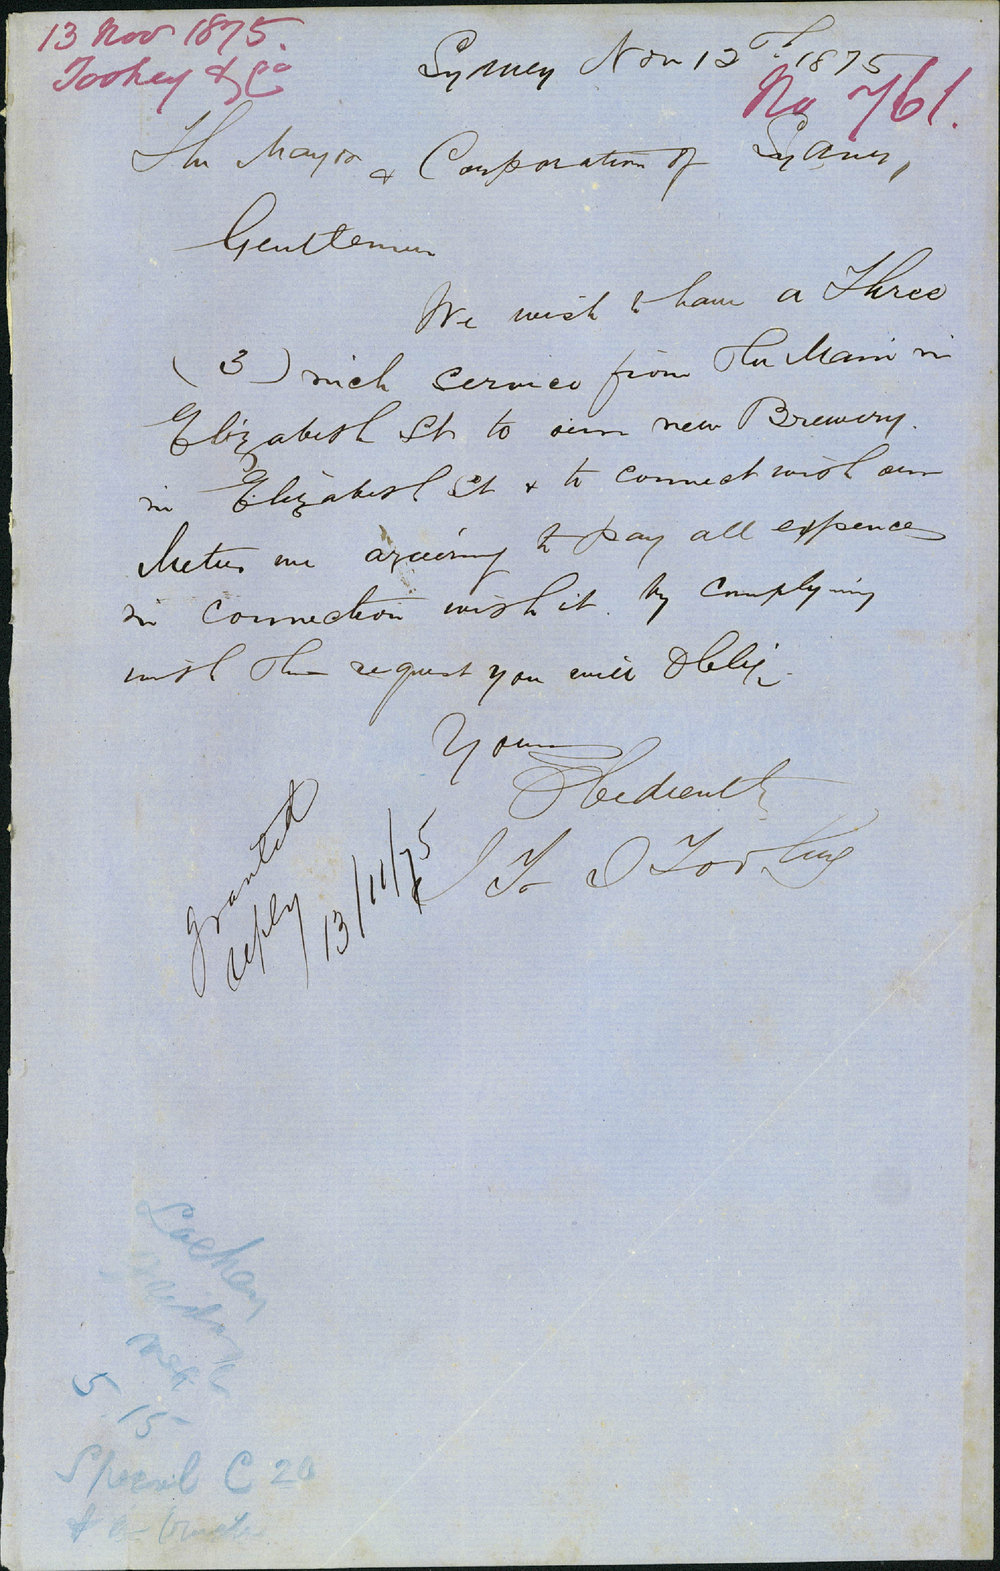 13 Nov 1875.
Toohey & Co
Sydney Nov 12th 1875
No 761.
The Mayor & Corporation of Sydney,
Gentlemen
We wish to have a Three
(3) inch service from the Main in
Elizabeth St to our new Brewery.
in Elizabeth St & to connect with our
Meter we agreeing to pay all expences
in connection with it. by complying
with this request you will Oblige
Yours
Obediently
J T & J Toohey
granted
reply
13/11/75
5
15
Special C 20